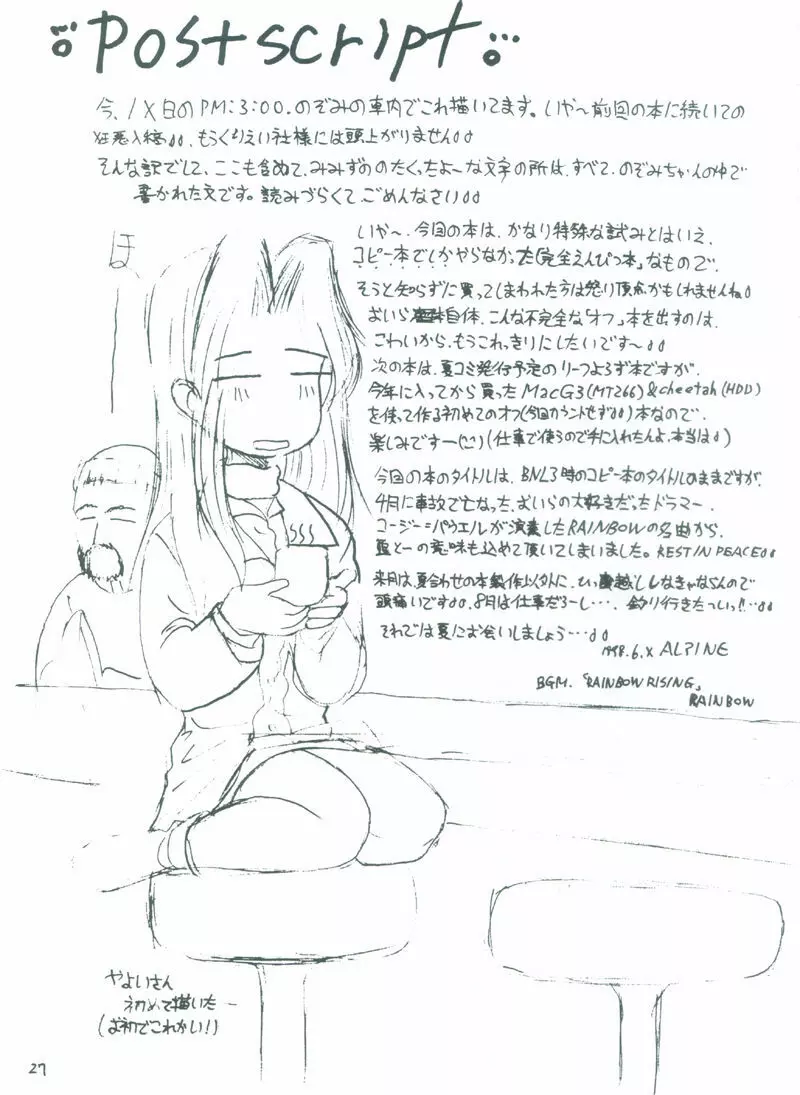 postscript
今、1X日のPM:3:00.のぞみの車内でこれ描いてます。いや〜前回の本に続いての
狂悪入稿、もうくりえい社様には頭上がりません
そんな訳でして、ここも含めて、みみずののたくったよーな文字の所は、すべて、のぞみちゃんの中で
書かれた文です。読みづらくて、ごめんなさい
いや〜、今回の本は、かなり特殊な試みとはいえ、
コピー本でしかやらなかった「完全えんぴつ本」なもので、
そうと知らずに買ってしまわれた方は怒り頂点かもしれませんね
おいら自体、こんな不完全な「オフ」本を出すのは、
こわいから、もうこれっきりにしたいです〜
次の本は、夏コミ発行予定のリーフよろず本ですが、
今年に入ってから買ったMacG3(MT266)&cheetah(HDD)
を使って作る初めてのオフ(今回カウントせず)本なので、
楽しみですー(仕事で使うので手に入れたんよ、本当は)
今回の本のタイトルは、BNL3時のコピー本のタイトルのままですが、
4月に事故で亡なった、おいらの大好きだったドラマー、
コージー=パウエルが演奏したRAINBOWの名曲から、
追とーの意味も込めて頂いてしまいました。REST IN PEACE
来月は、夏合わせの本製作以外に、ひっ越ししなきゃならんので
頭痛いです、8月は仕事だろーし…、釣り行きたっいっ!!…
それでは夏にお会いしましょう…
1998.6.X ALPINE
BGM.「RAINBOW RISING」
RAINBOW
ほ
やよいさん
初めて描いた…
(お初でこれかい!)
27